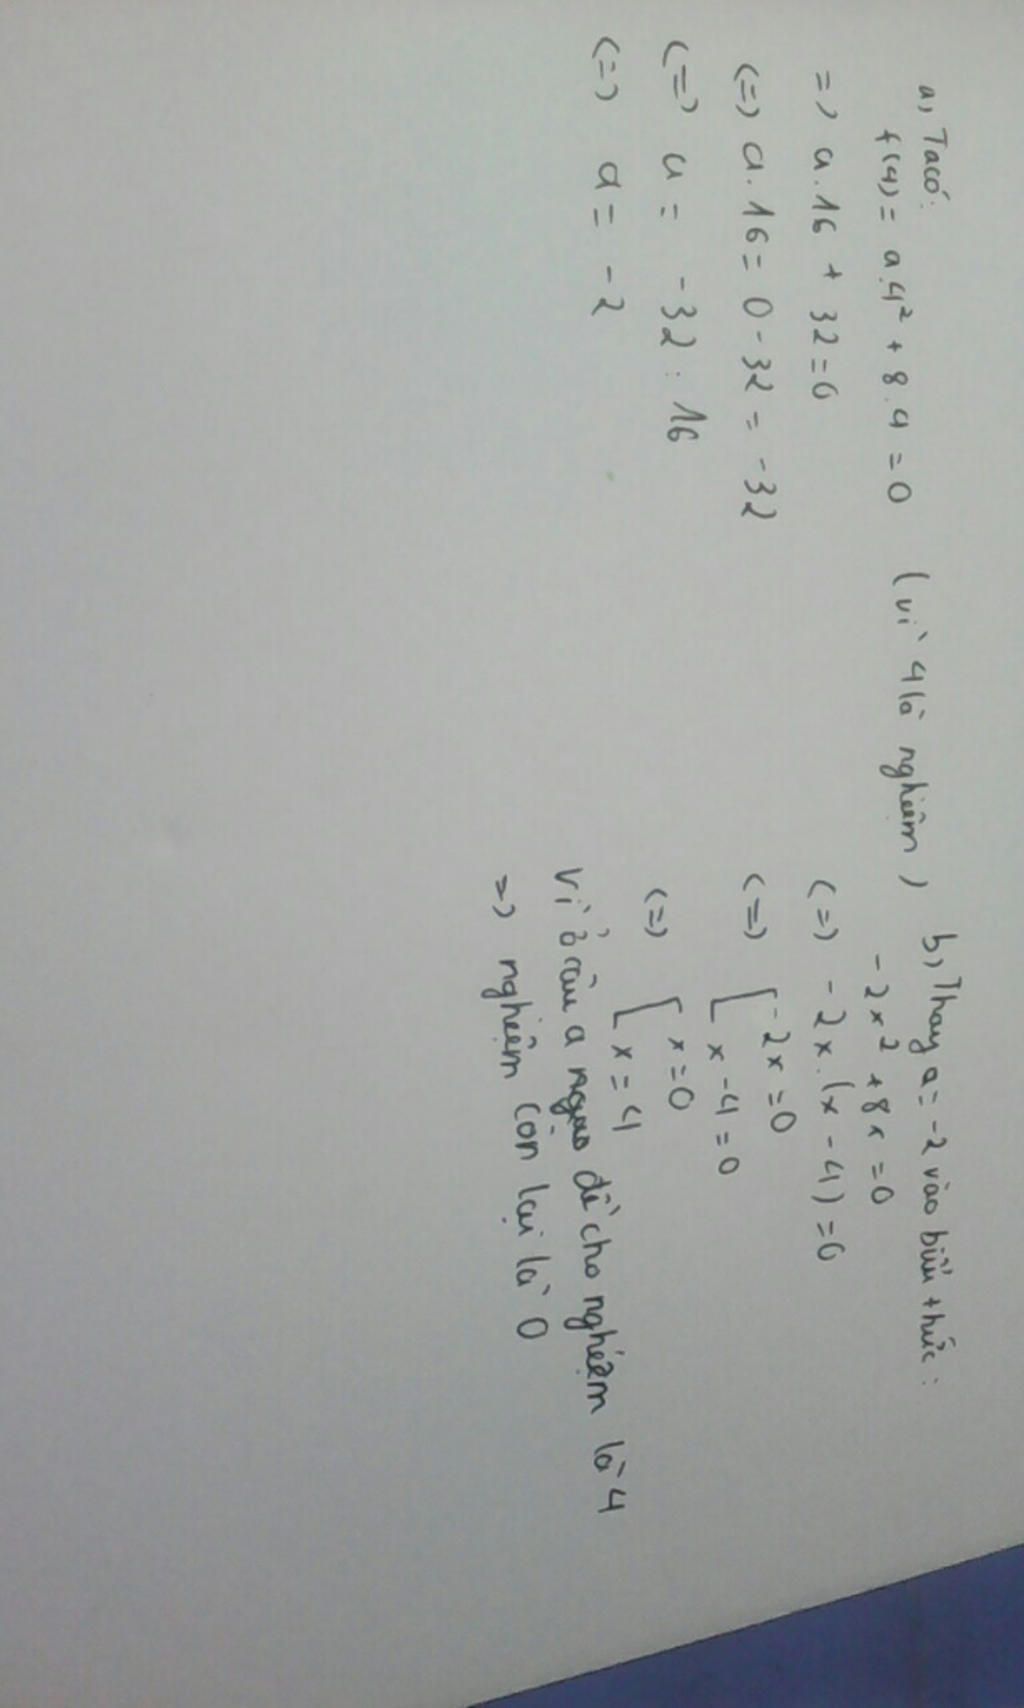 a, Ta có:
f(4) = a.4² + 8.4 = 0 (vì 4 là nghiệm)
=) a.16 + 32 = 0
(=) a.16 = 0 - 32 = -32
(=) a = -32 : 16
(=) a = -2
b, Thay a = -2 vào biểu thức:
-2x² + 8x = 0
(=) -2x.(x - 4) = 0
(=) [ -2x = 0
x - 4 = 0
(=) [ x = 0
x = 4
Vì ở câu a đề cho nghiệm là 4
=) nghiệm còn lại là 0